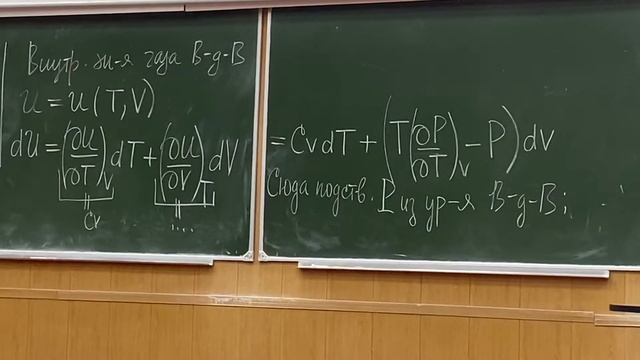 Внутр. эн-я газа В-д-В
U = U(T,V)
dU = (∂U/∂T)_V dT + (∂U/∂V)_T dV
Cv
....
= CvdT + (T(∂P/∂T)_V - P)dV
Сюда подств. P из ур-я В-д-В;